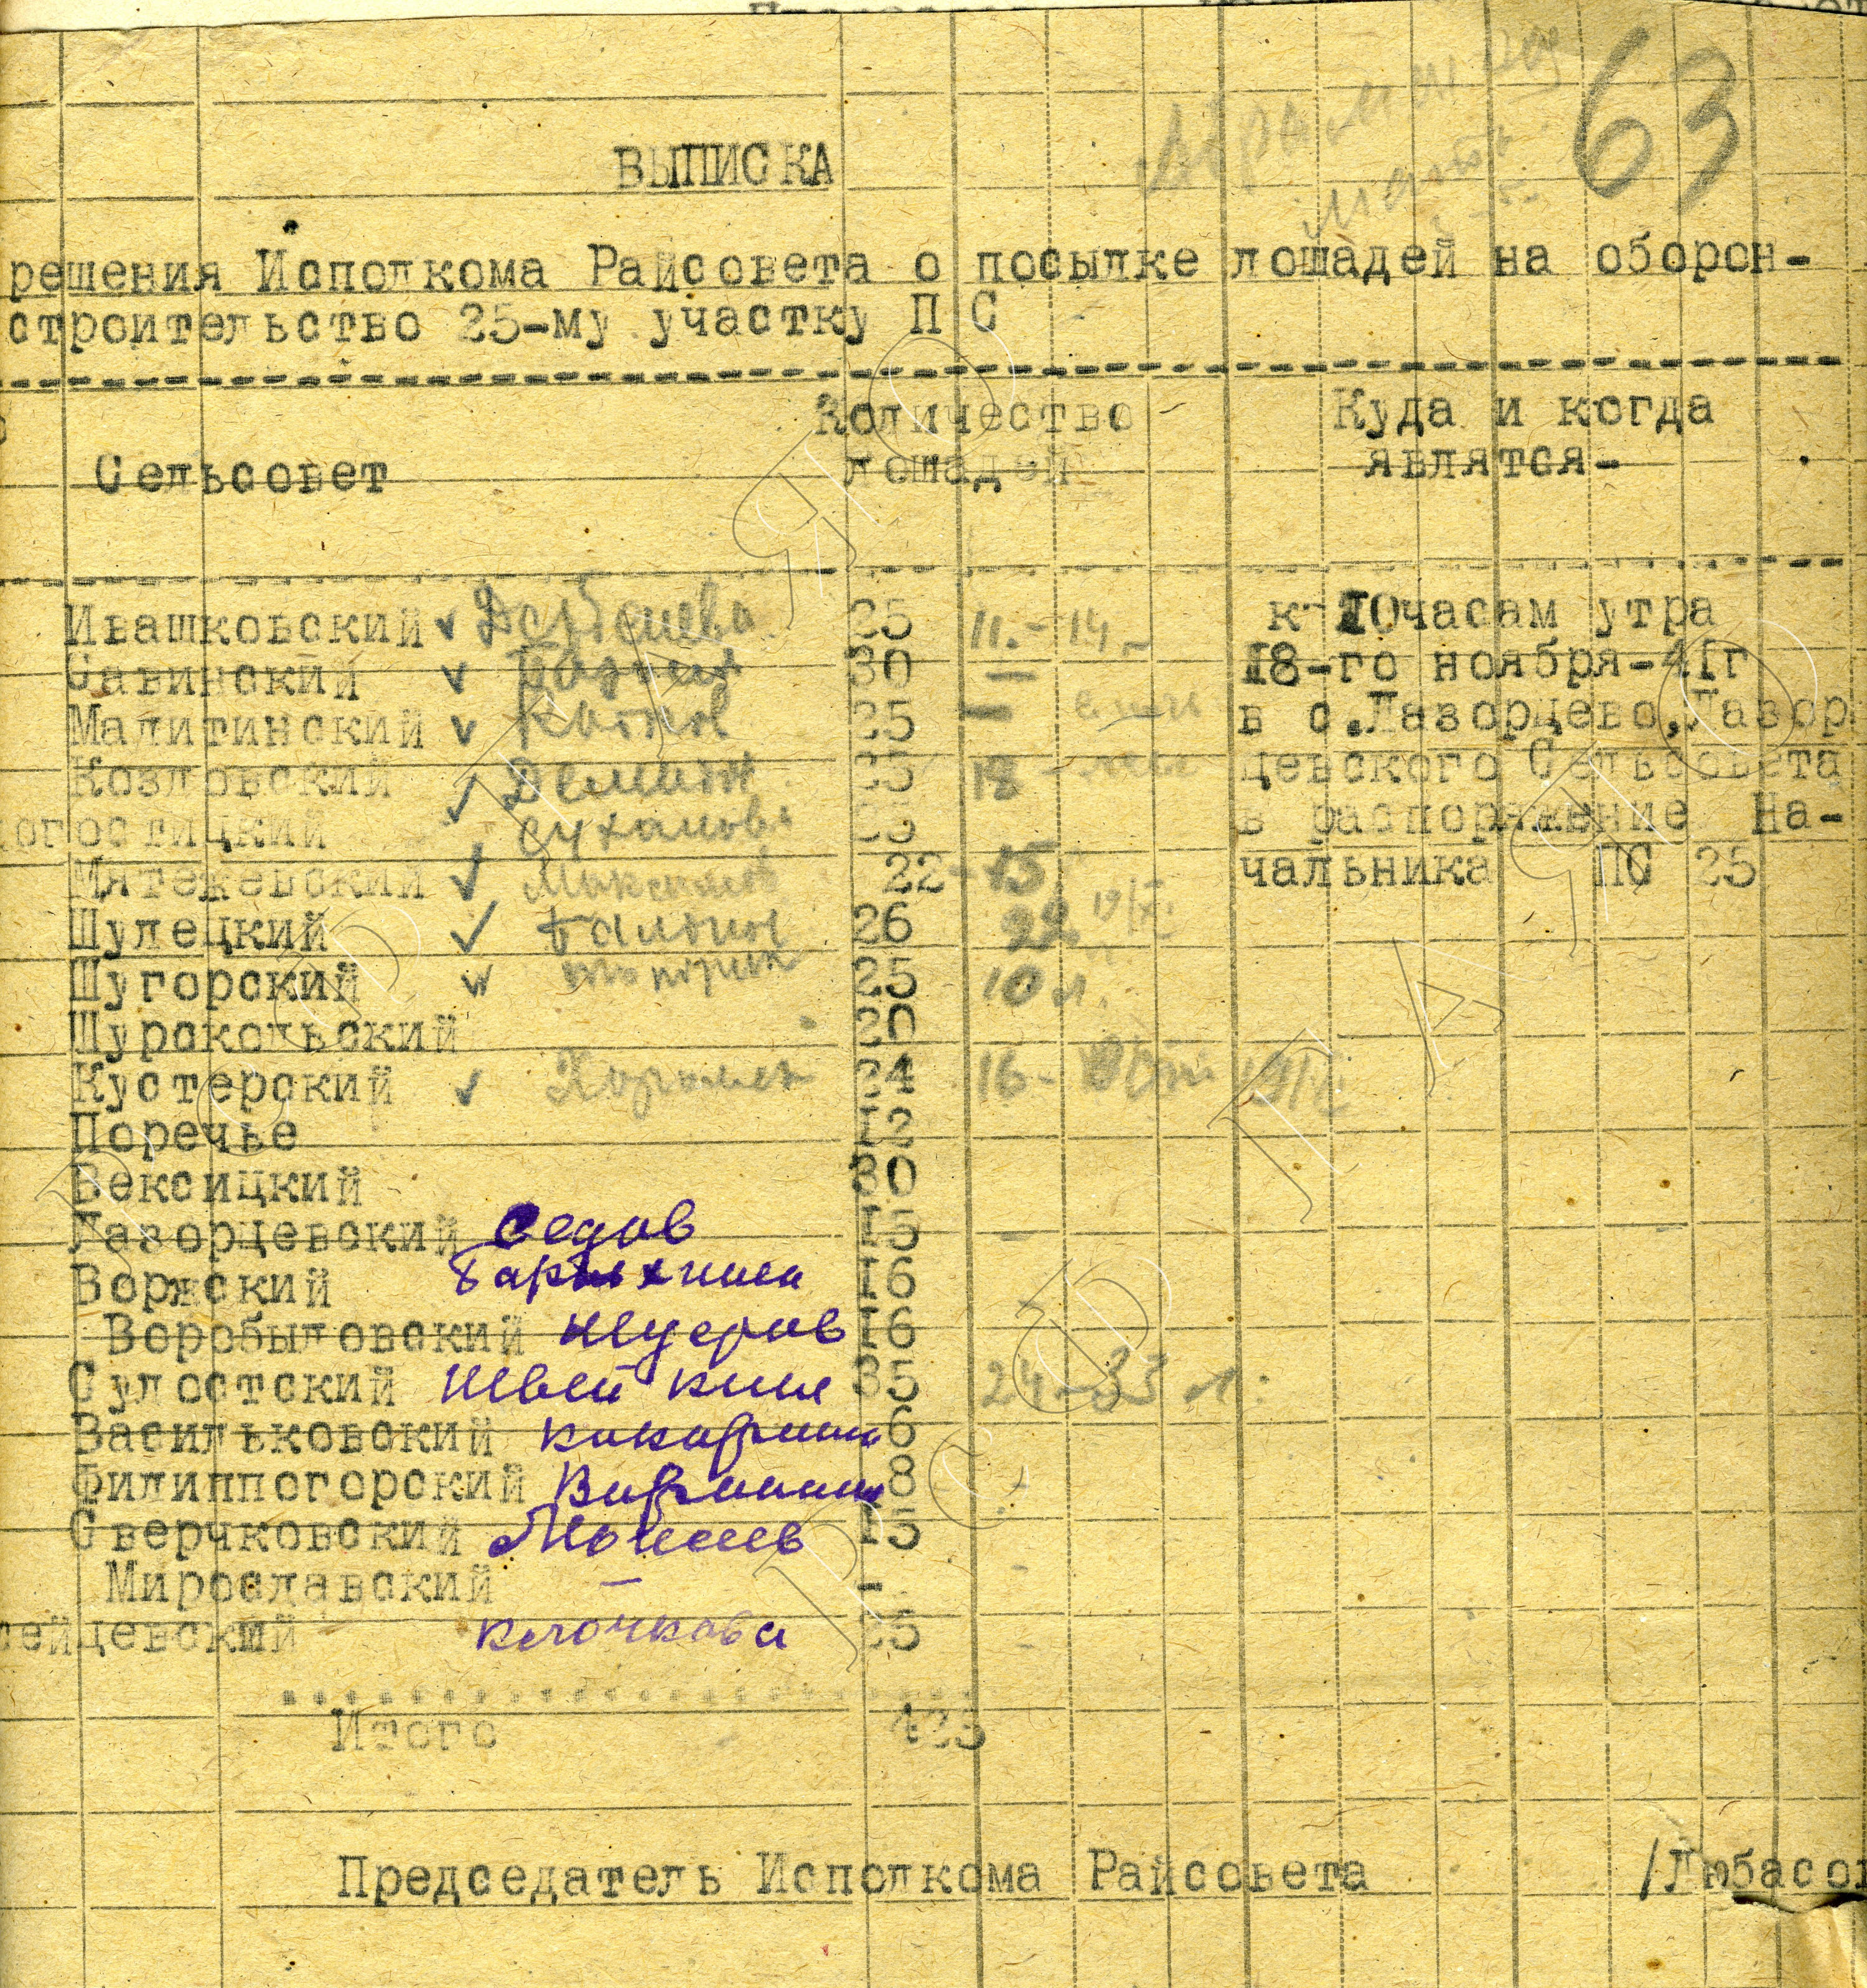 63
ВЫПИСКА
решения Исполкома Райсовета о посылке лошадей на оборон-
строительство 25-му участку П С
Количество Куда и когда
Сельсовет лошадей являтся-
Ивашковский 25 11.- 14 к 10часам утра
Савинский 30 — 18-го ноября-41г
Малитинский Котов 25 — в с.Лазорцево,Лазор
Козловский Демин 18 цевского Сельсовета
огостицкий Суханова в распоряжение На-
Мятежевский 22 - 15 чальника ПС 25
Шулецкий 26 22 19/XI
Шугорский Топорин 25 10 л.
Шурскольский 20
Кустерский 24 16 -
Поречье 12
Вексицкий 30
Лазорцевский Седов 15
Воржский 16
Воробыловский Шуеров 16
Сулостский Швейкин 35 24-33 л.
Васильковский Кокорина 6
Филиппогорский 8
Сверчковский Моисеев 15
Мирославский — -
сейцевский Клочкова
Итого 425
Председатель Исполкома Райсовета /Любасов